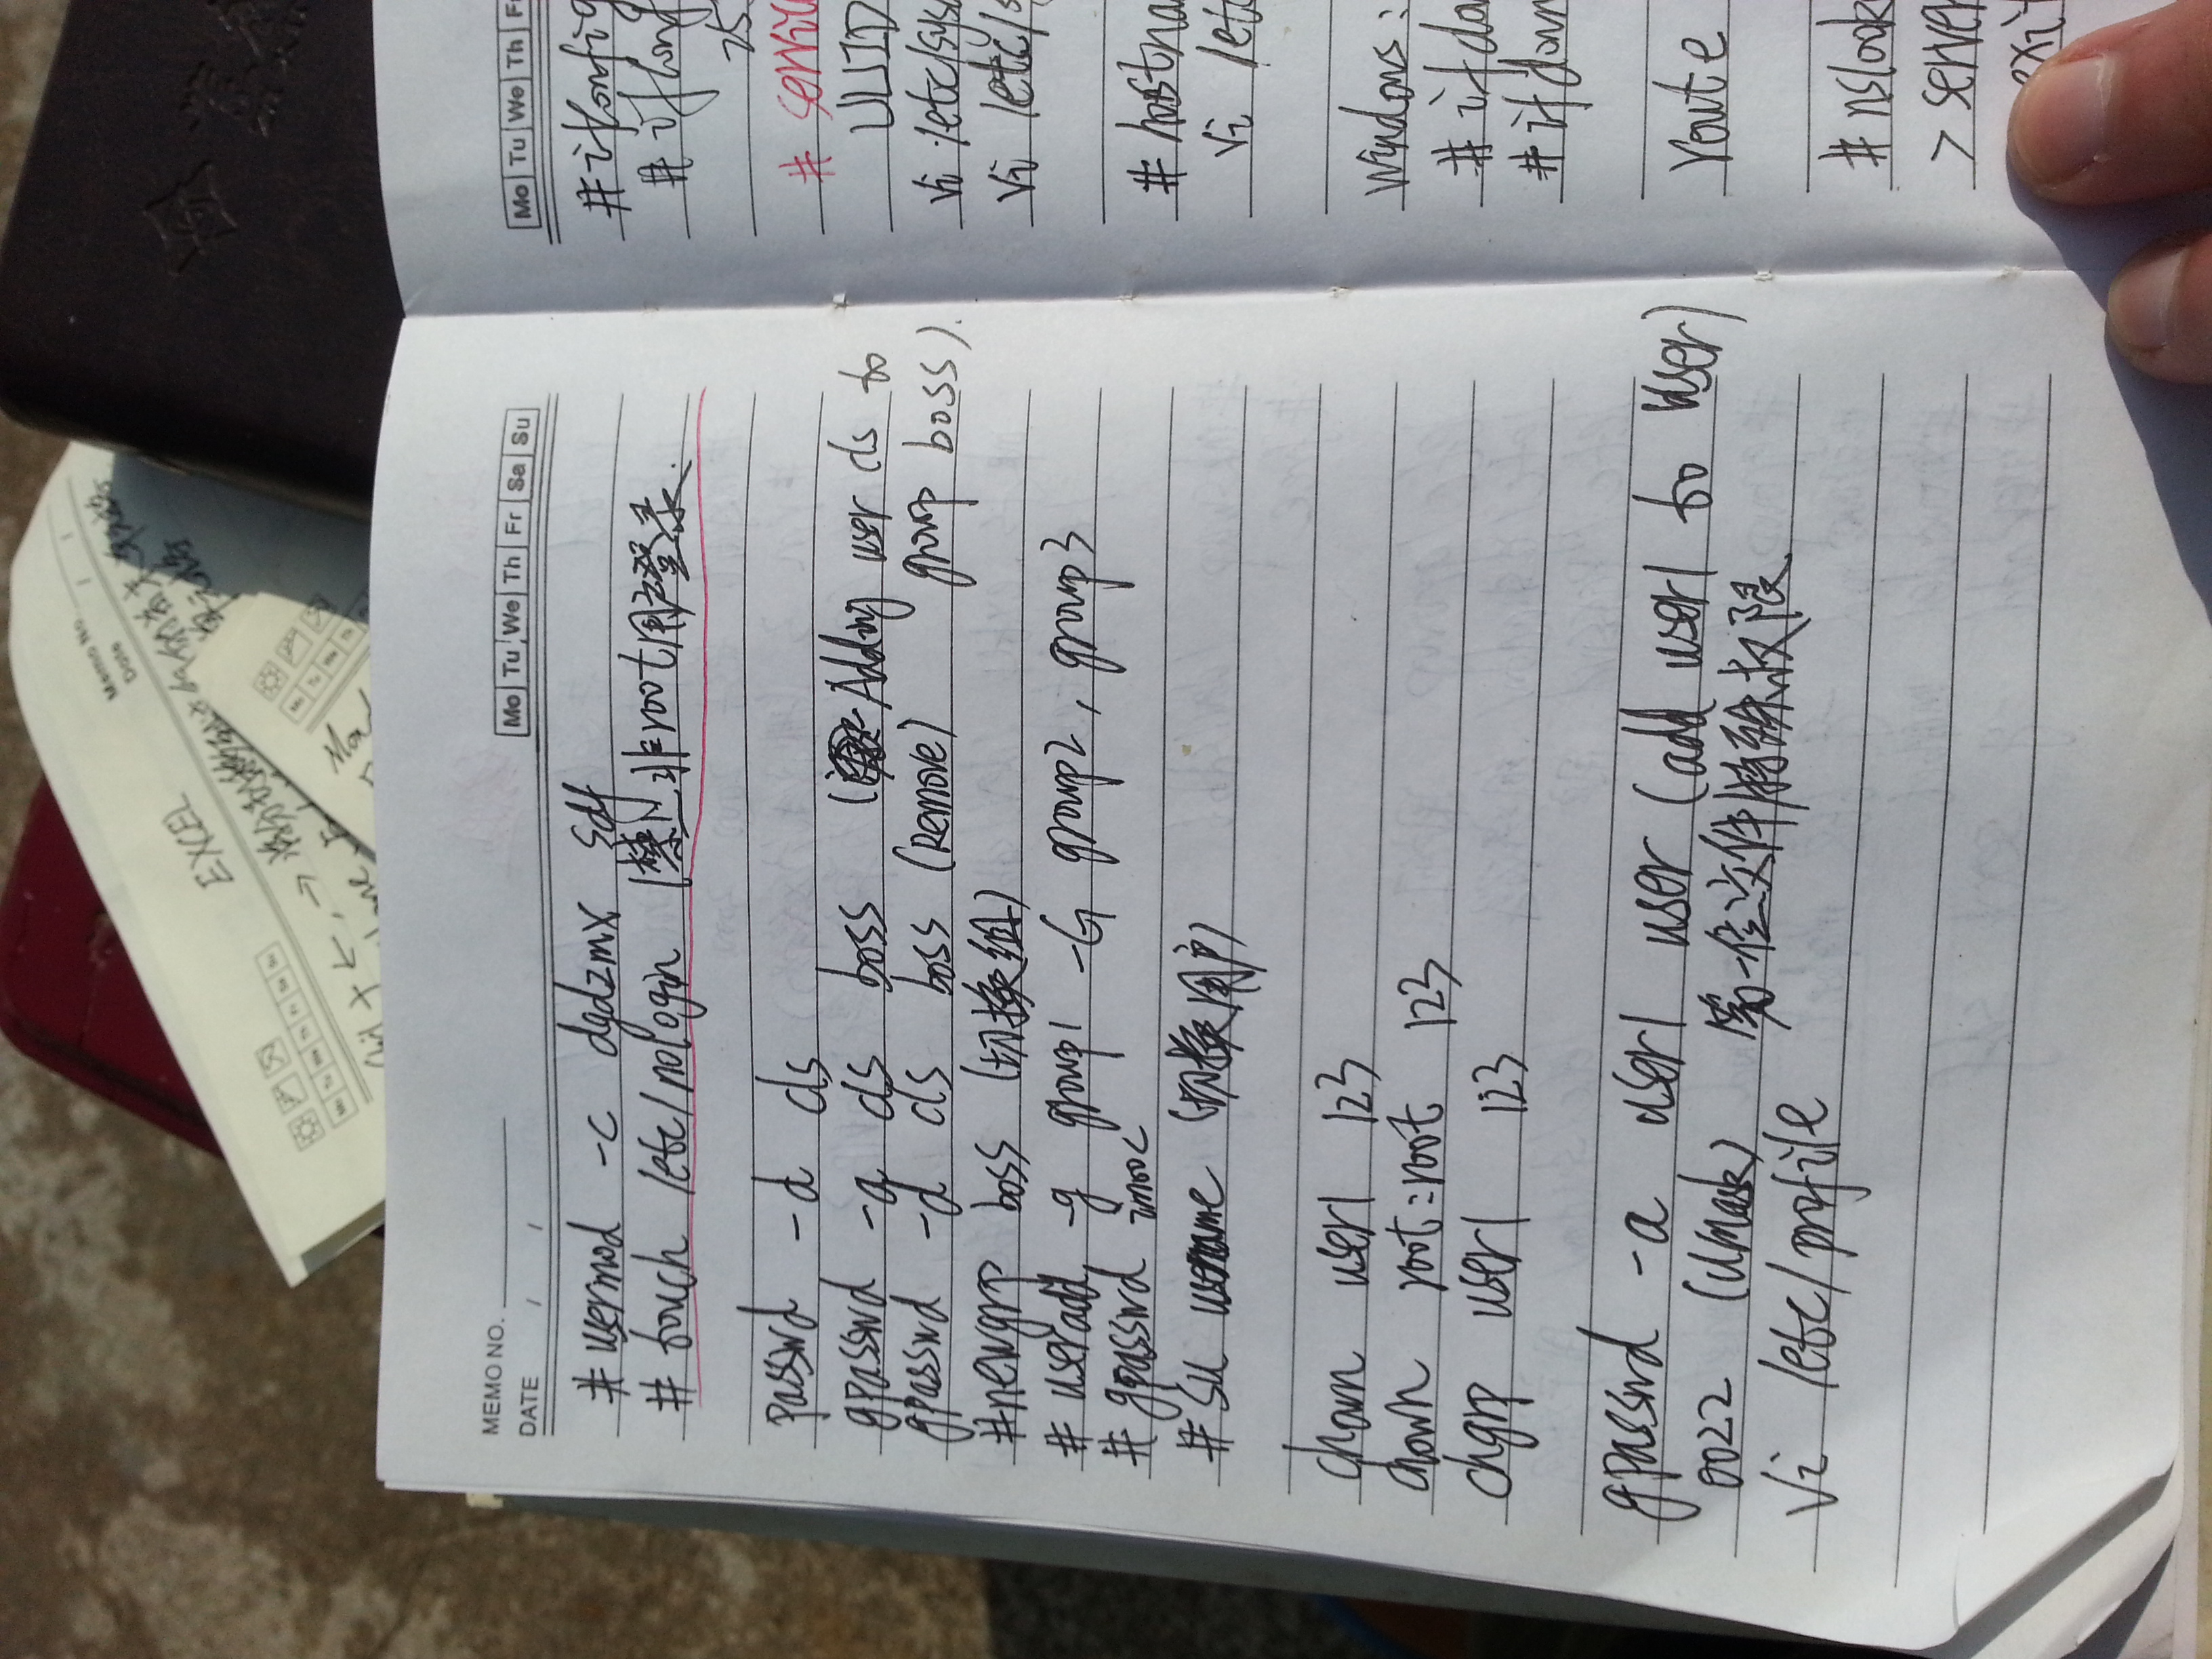 MEMO NO.
DATE / /
Mo Tu We Th Fr Sa Su
# usermod -c dgdzmx sdf
# touch /etc/nologin 禁止非root用户登录.
passwd -d ds
gpasswd -a ds boss ( Adding user ds to
gpasswd -d ds boss (Remove) group boss).
#newgrp boss (切换组)
# useradd -g group1 -G group2, group3
# gpasswd imooc
# su username (切换用户)
chown user1 123
chown root:root 123
chgrp user1 123
gpasswd -a user1 user (add user1 to user)
0022 (umask) 第一位文件特殊权限
vi /etc/profile
Mo Tu We Th F
# ifconfig
# ifconf
# servi
UUID
vi /etc/sys
vi /etc/s
# hostna
vi /etc
Windows:
# ifdo
# ifdown
route
# nslook
> server
exi
EXCEL
Memo No.
Date / /
单元格